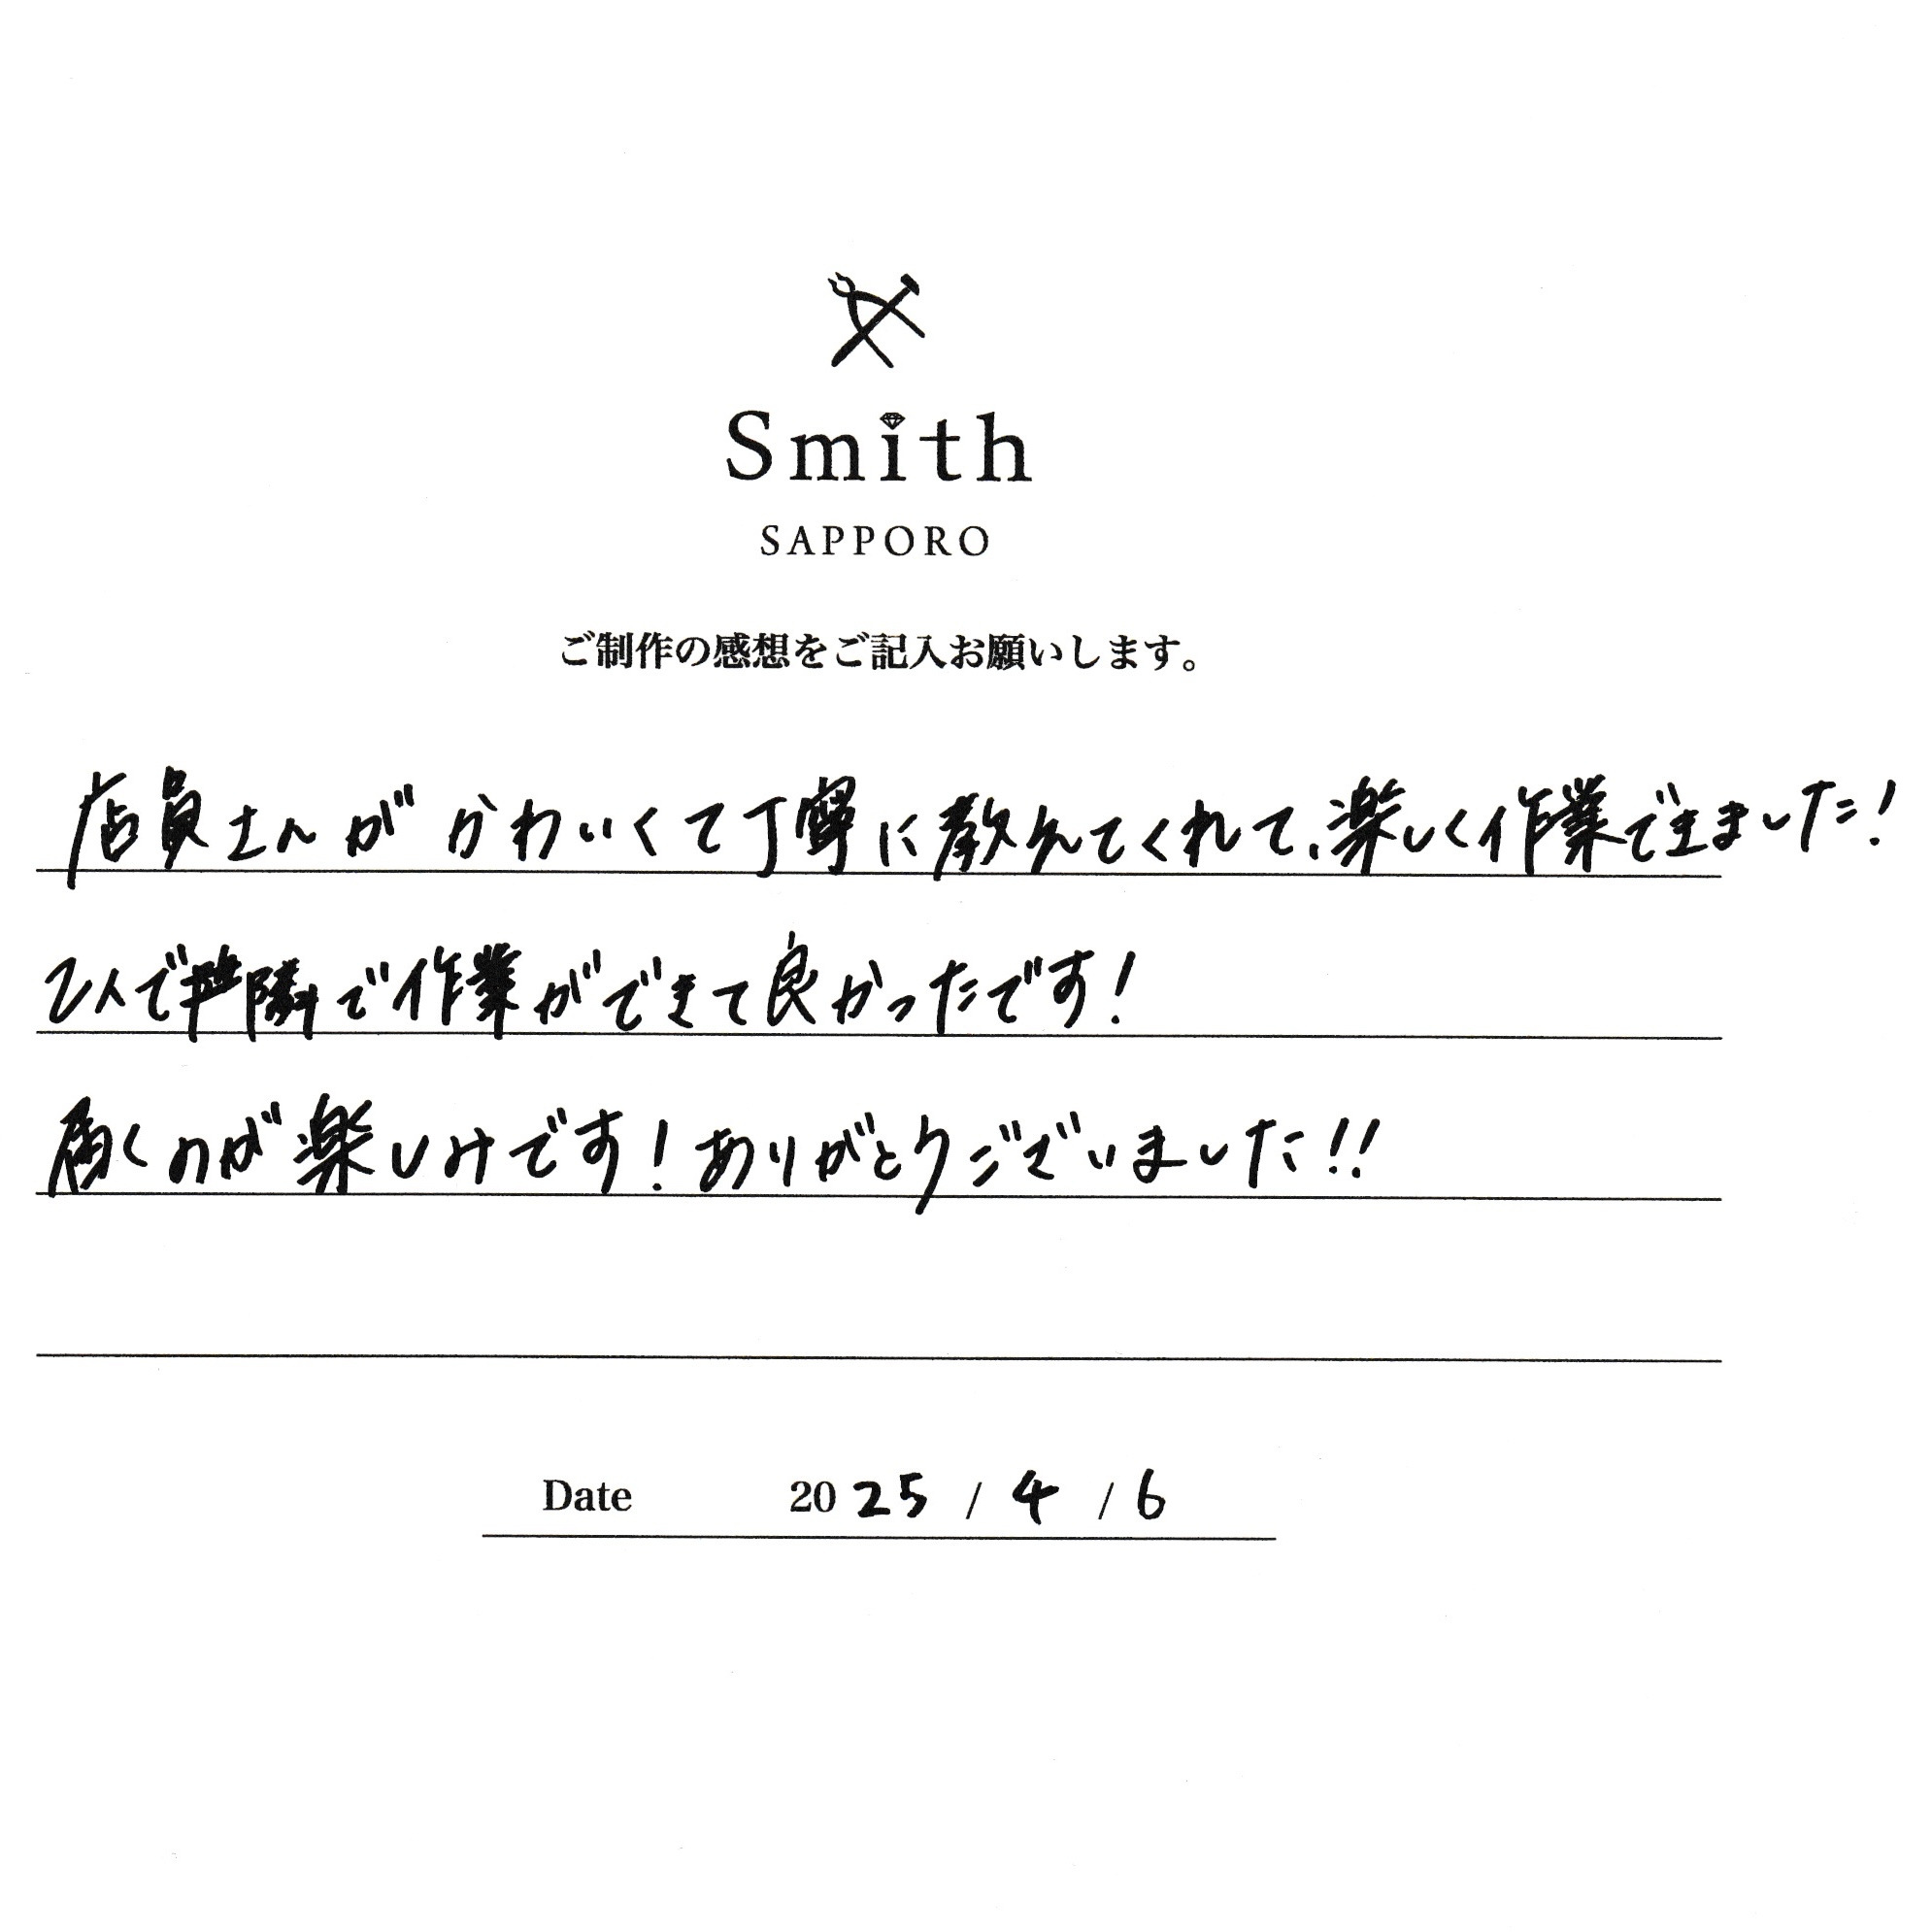 Smith
SAPPORO
ご制作の感想をご記入お願いします。
店員さんがかわいくて丁寧に教えてくれて、楽しく作業できました!
2人で隣で作業ができて良かったです!
届くのが楽しみです!ありがとうございました!!
Date 2025/4/6